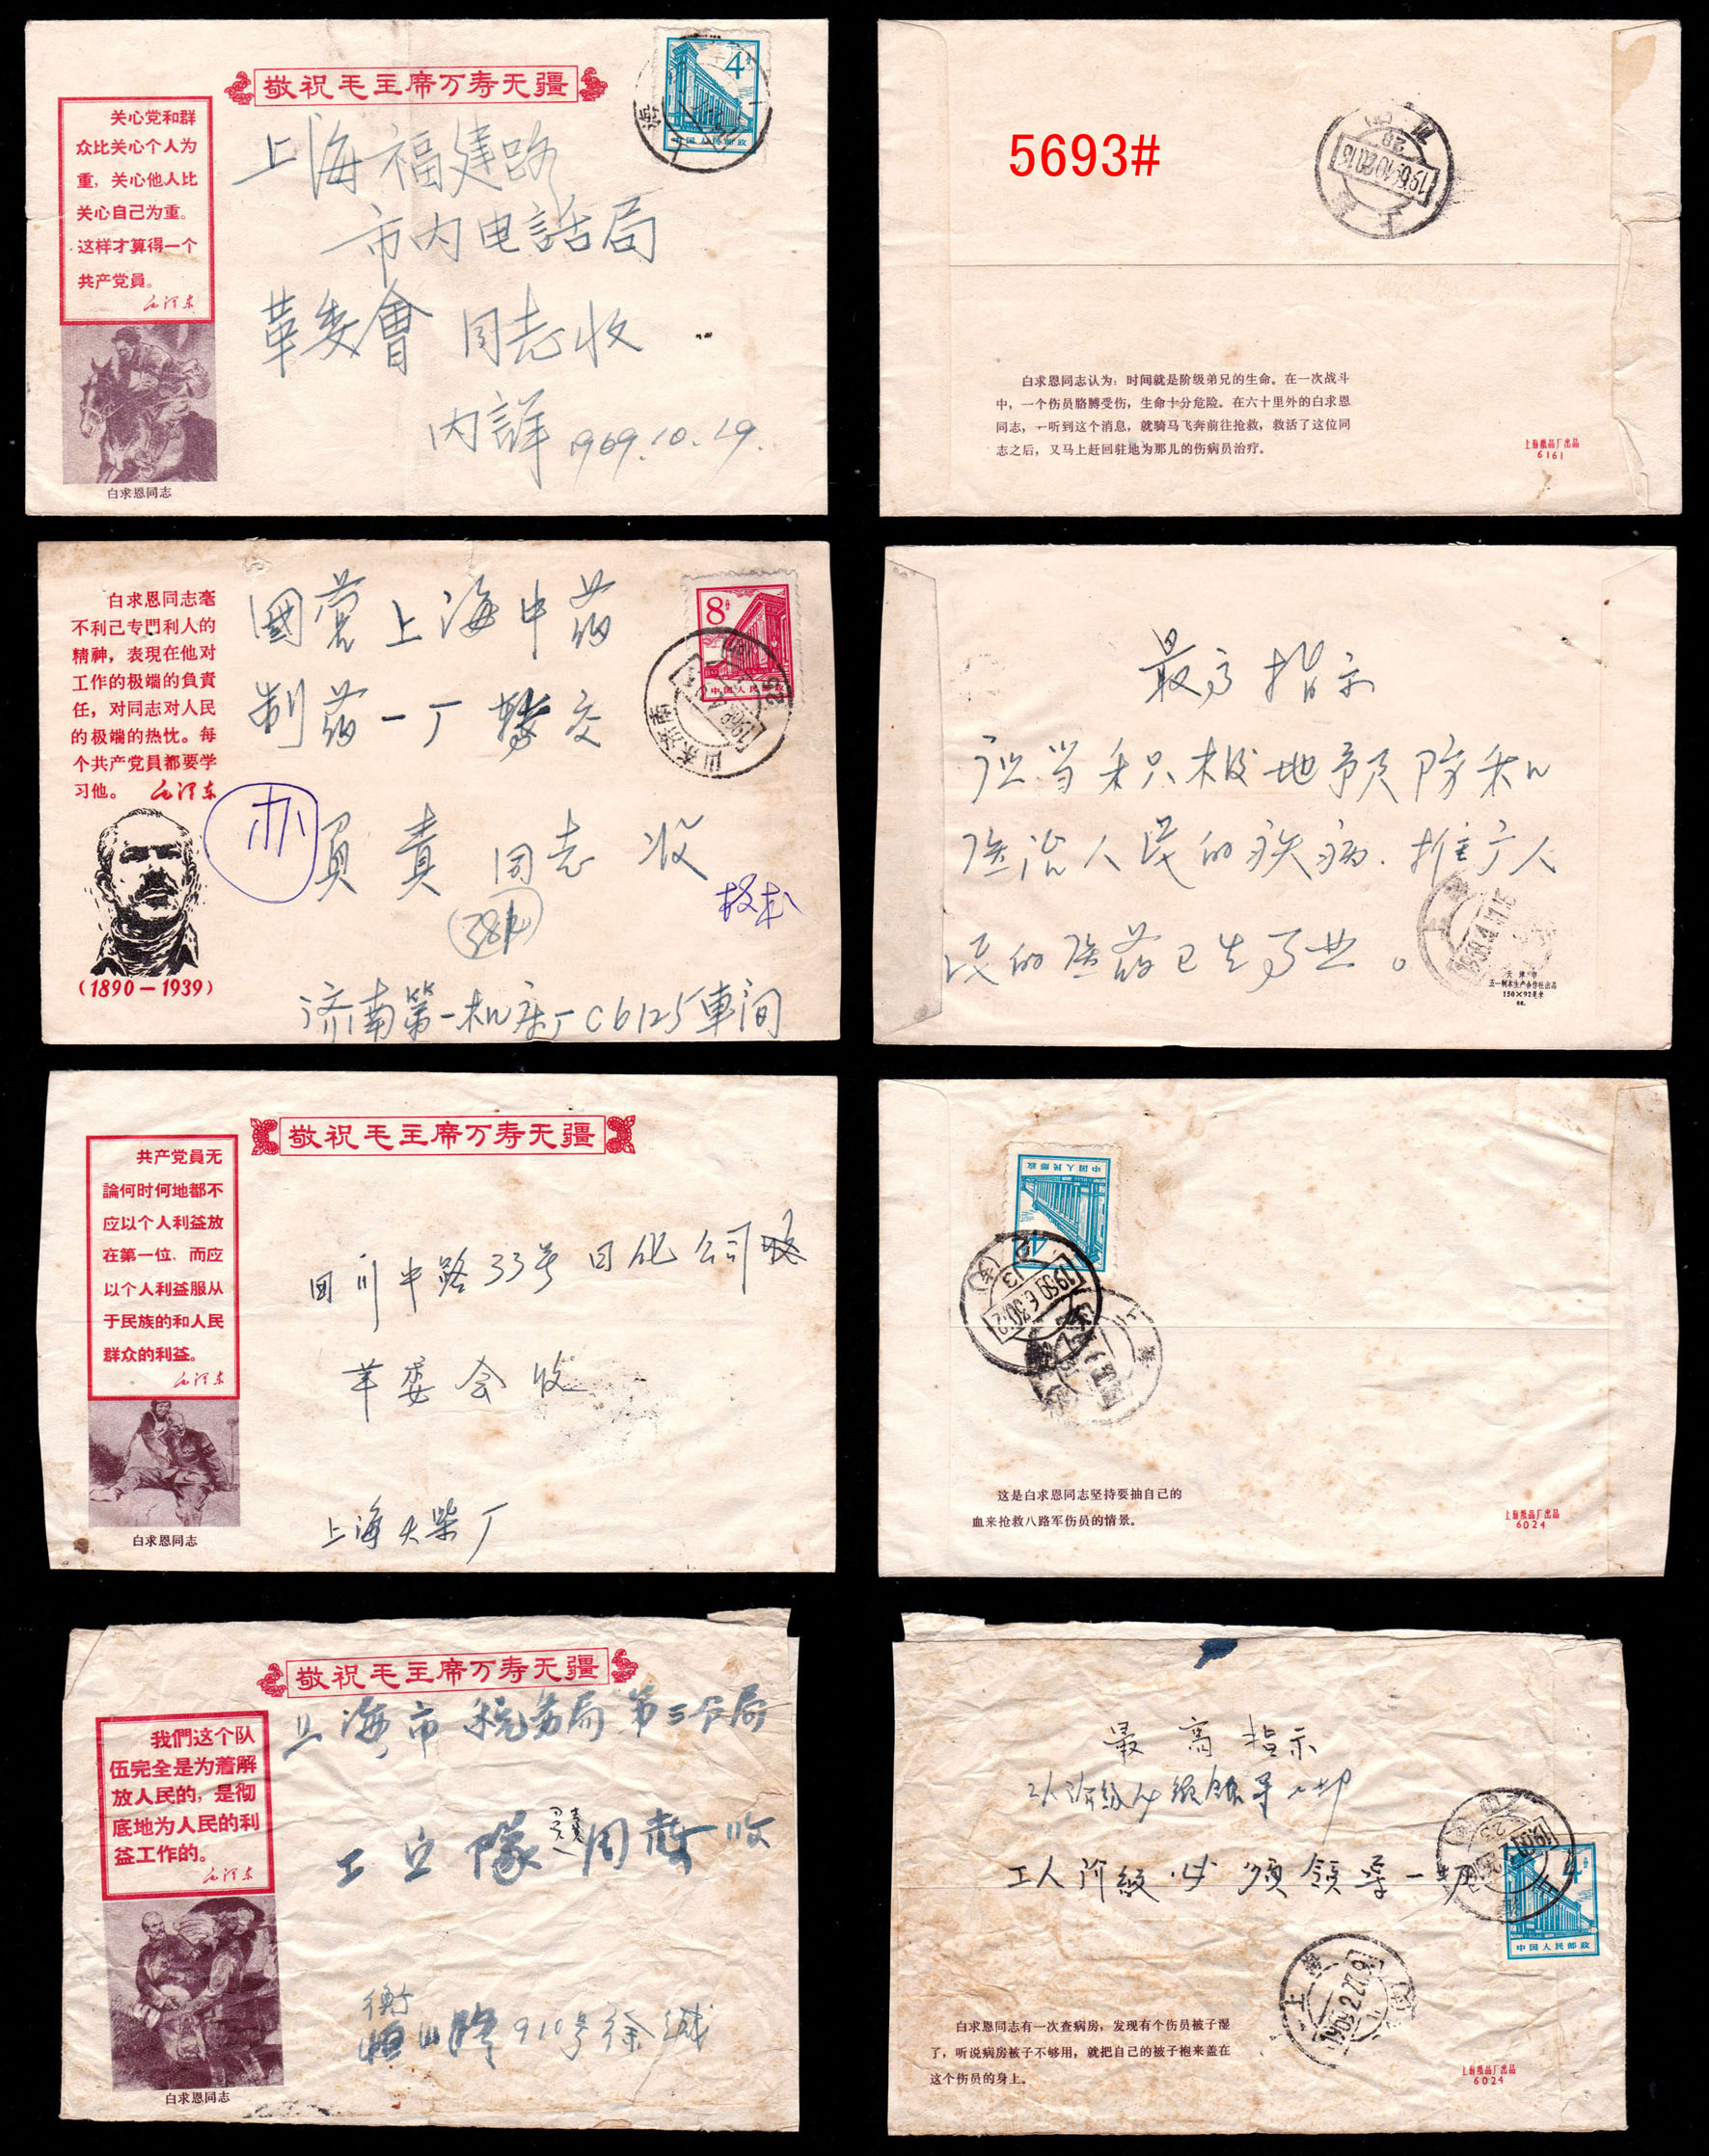 敬祝毛主席万寿无疆
关心党和群
众比关心个人为
重，关心他人比
关心自己为重。
这样才算得一个
共产党員。
毛泽东
白求恩同志
4
中国人民邮政
上海福建路
市内电話局
革委會 同志收
内詳 1969.10.19.
5693#
白求恩同志认为：时间就是阶级弟兄的生命。在一次战斗
中，一个伤员胳膊受伤，生命十分危险。在六十里外的白求恩
同志，一听到这个消息，就骑马飞奔前往抢救，救活了这位同
志之后，又马上赶回驻地为那儿的伤病员治疗。
上海纸品厂出品
6161
白求恩同志毫
不利己专門利人的
精神，表現在他对
工作的极端的負責
任，对同志对人民
的极端的热忱。每
个共产党員都要学
习他。 毛泽东
(1890—1939)
8
中国人民邮政
山东济南
國营上海中药
制药一厂 转交
办
負責 同志 收
济南第一机床厂C6125車间
最高指示
应当积极地予防和
医治人民的疾病．推广人
民的医药卫生事业。
天津市
五一制本生产合作社出品
150×92毫米
66.
敬祝毛主席万寿无疆
共产党員无
論何时何地都不
应以个人利益放
在第一位，而应
以个人利益服从
于民族的和人民
群众的利益。
毛泽东
白求恩同志
四川中路33号日化公司
革委会收
上海火柴厂
中国人民邮政
4
这是白求恩同志坚持要抽自己的
血来抢救八路军伤员的情景。
上海纸品厂出品
6024
敬祝毛主席万寿无疆
我們这个队
伍完全是为着解
放人民的，是彻
底地为人民的利
益工作的。
毛泽东
白求恩同志
上海市税务局第三分局
工宣隊 負責同志收
衡山路910号徐缄
最高指示
工人阶級必须領导一切
4
中国人民邮政
白求恩同志有一次查病房，发现有个伤员被子湿
了，听说病房被子不够用，就把自己的被子抱来盖在
这个伤员的身上。
上海纸品厂出品
6024